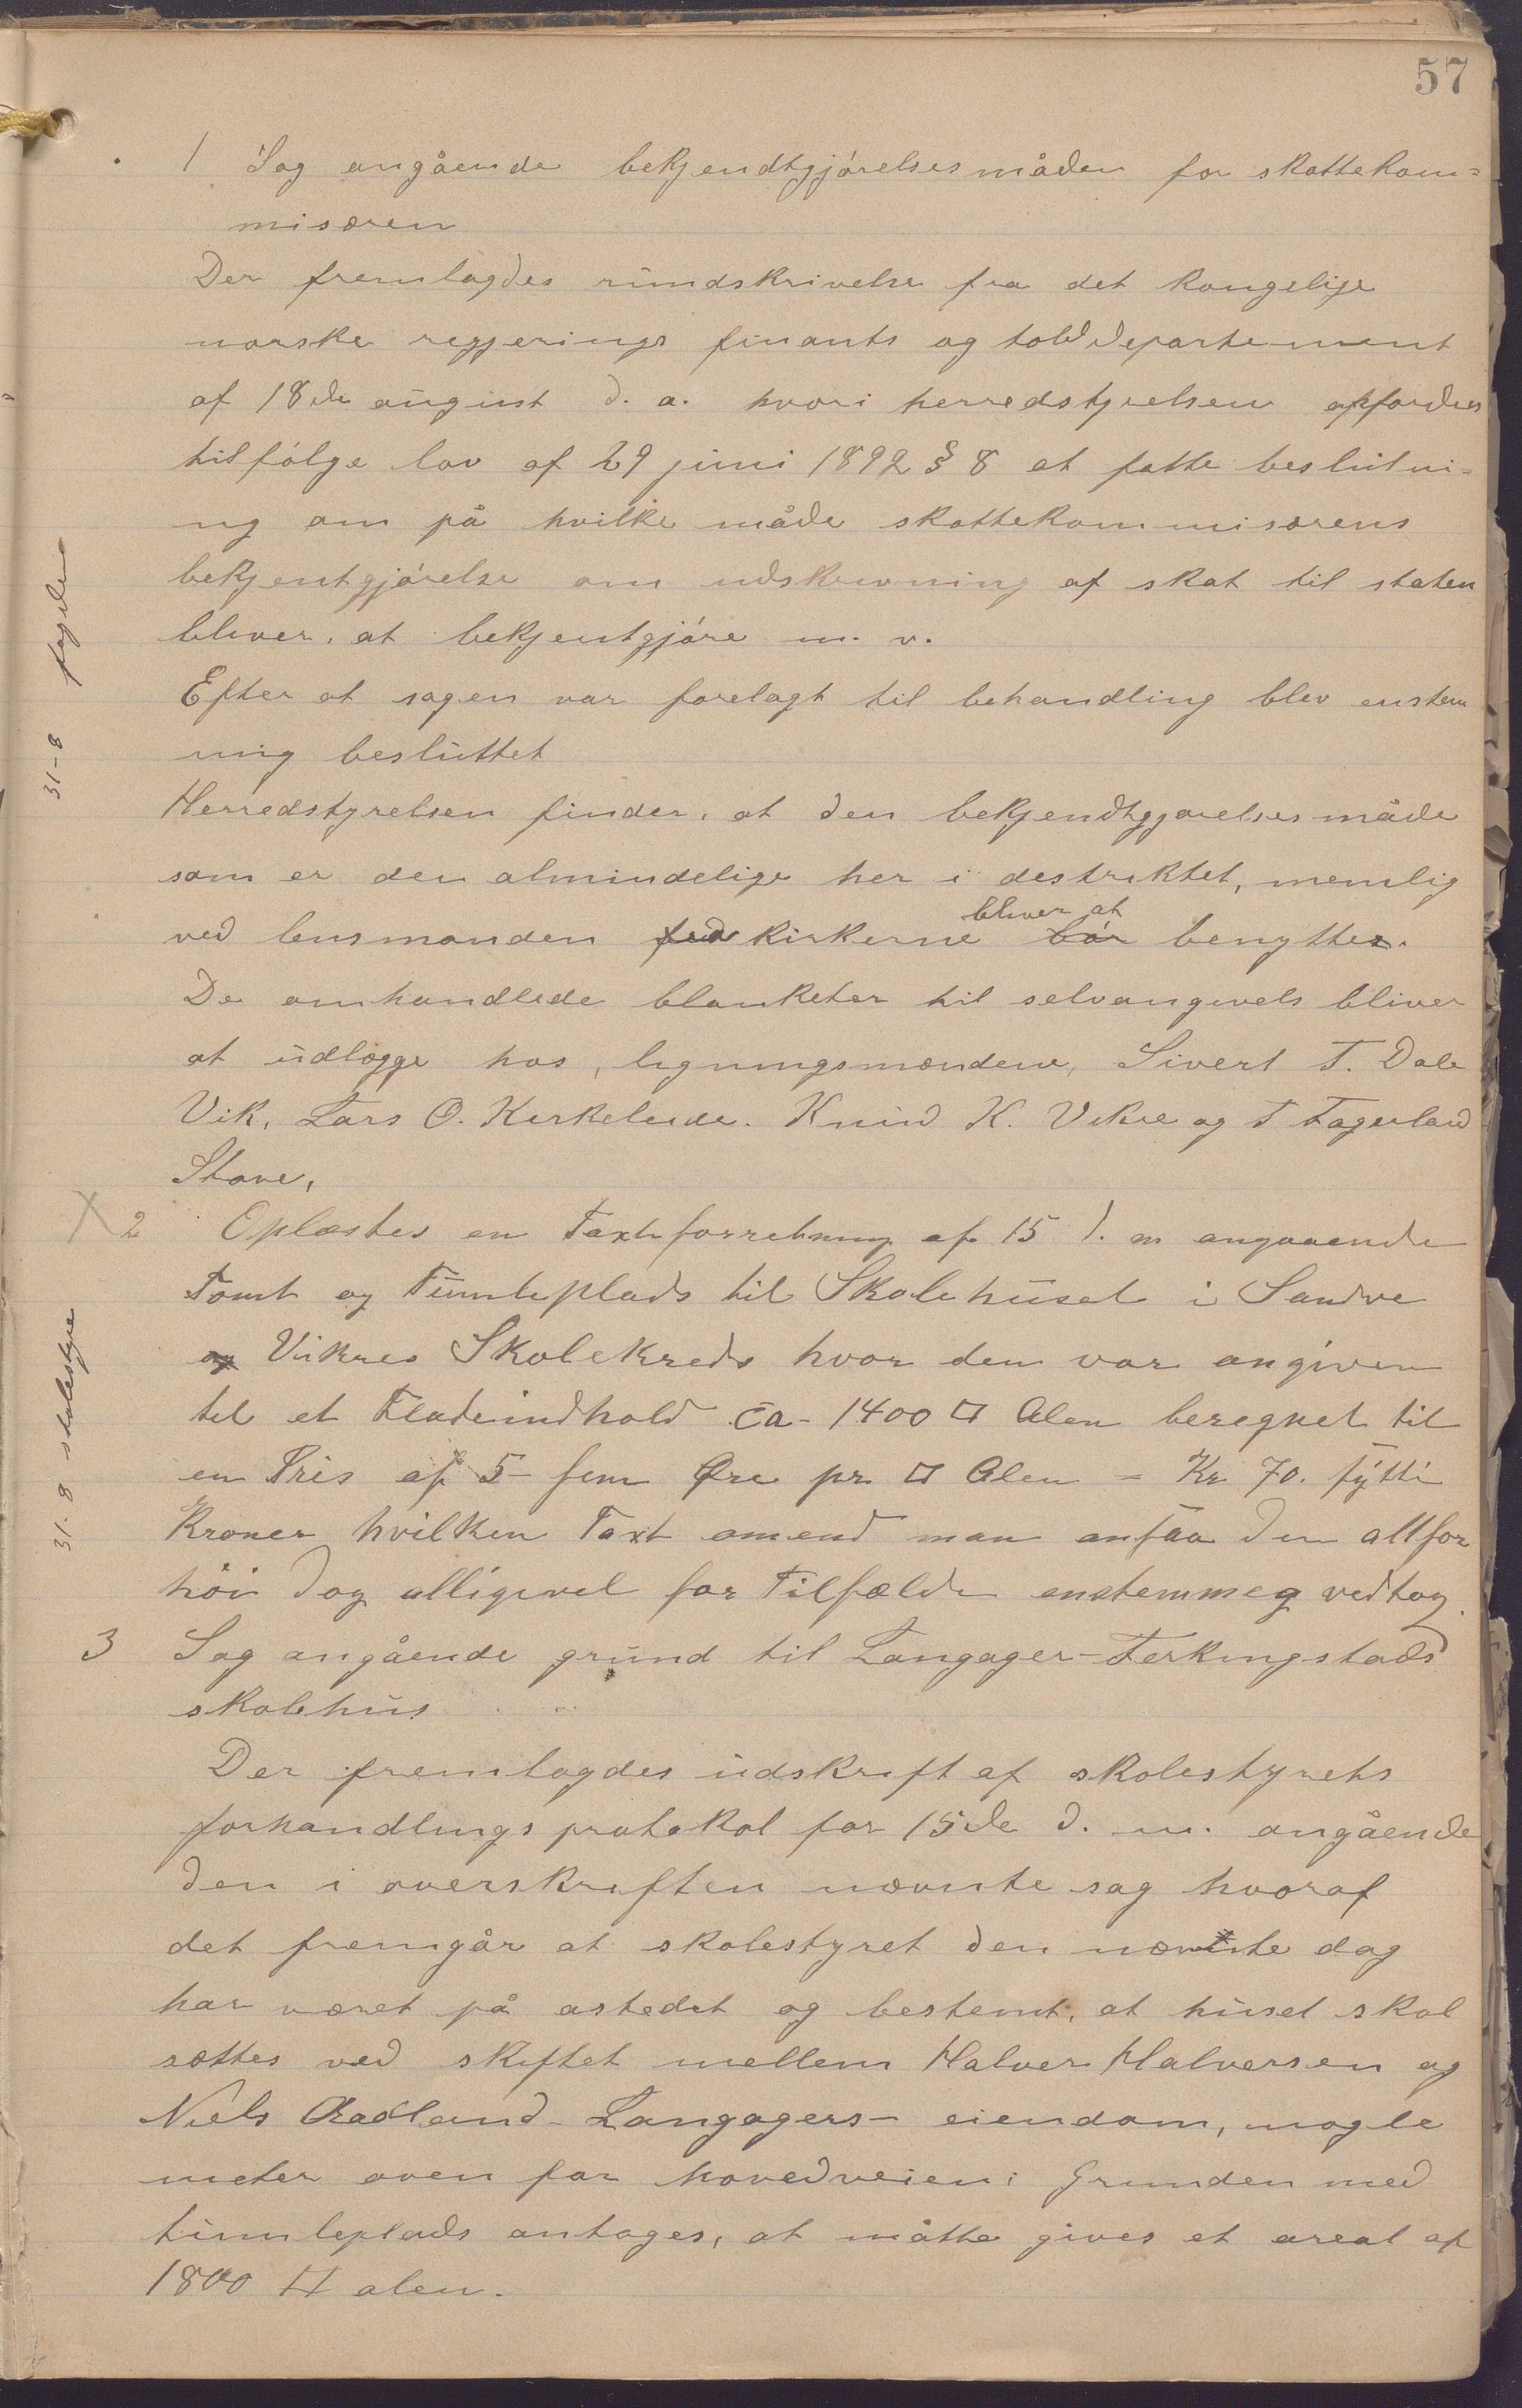 57
1 Sag angående bekjendtgjørelsesmåden for skattekom=
misæren
Der fremlagdes rundskrivelse fra det kongelige
norske regjerings finants og tolddepartement
af 18de august d. a. hvori herredstyrelsen opfordres
tilfølge lov af 29 juni 1892 § 8 at fatte beslutni=
ng om på hvilke måde skattekommisærens
bekjentgjørelse om udskrivning af skat til staten
bliver, at bekjentgjøre m. v.
Efter at sagen var forelagt til behandling blev enstem
mig besluttet
Herredstyrelsen finder, at den bekjendtgjørelsesmåde
som er den almindelige her i destriktet, nemlig
ved lensmanden ved kirkerne bør bliver at benytte.
De omhandlede blanketer til selvangivels bliver
at udlægge hos, ligningsmændene, Sivert T. Dale
Vik, Lars O. Kirkeleide. Knud K. Vikre og T Fagerland
Stave,
2 Oplæstes en Taxtforretning af 15 d. m angaaende
Tomt og Tumleplads til Skolehuset i Sandve
og Vikres Skolekreds hvor den var angiven
til et Fladeindhold ca - 1400 □ Alen beregnet til
en Pris af 5 - fem Øre pr □ Alen = Kr 70. sytti
Kroner hvilken Taxt omend man ansaa den altfor
høi dog alligevel for Tilfælde enstemmeg vedtog.
3 Sag angående grund til Langager-Ferkingstads
skolehus
Der fremlagdes udskrift af skolestyrets
forhandlingsprotokol for 15de d. m. angående
den i overskriften nævnte sag hvoraf
det fremgår at skolestyret den nævnte dag
har været på astedet og bestemt, at huset skal
sættes ved skiftet mellem Halver Halversen og
Niels Aadland - Langagers - eiendom, nogle
meter oven for hovedveien; Grunden med
tumleplads antages, at måtte gives et areal af
1800 □ alen.
31-8
31-8 skolestyre